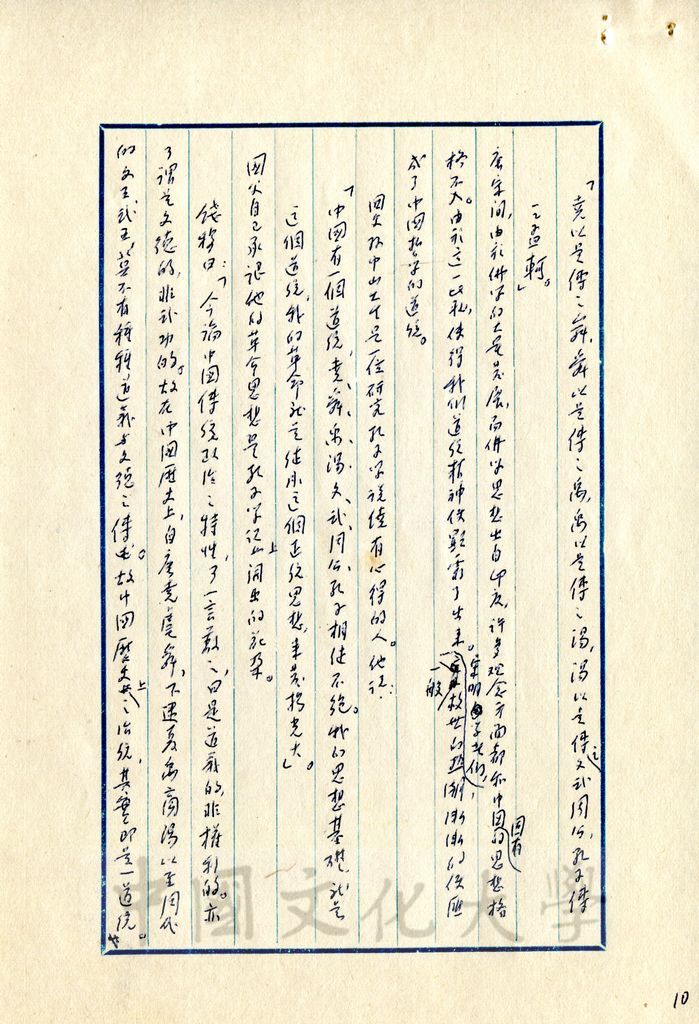 「堯以是傳之舜，舜以是傳之禹，禹以是傳之湯，湯以是傳之文武周公，孔子傳
之孟軻。」
唐宋間，由於佛學的大量發展，而佛學思想出自印度，許多观念方面都和中国固有的思想格
格不入。由於這一比私，使得我們道统精神使顯露了出来。宋明学者们，一般救世的熱潮漸漸的使匯
成了中国哲学的道统。
囯父孙中山先生是一位研究孔子学说德有心得的人。他说：
「中國有一個道統，堯、舜、禹、湯、文、武、周公、孔子相徒不绝。我的思想基礎就是
這個道统，我的革命就是徒承這個正统思想，来發揚光大」。
國父自己承認他的革命思想是孔子学说上開出的花朵。
錢穆曰：「今論中國傳统政治之特性，了一言蔽之，曰是道義的，非權利的。亦
了謂是文德的，非武功的。」故在中國歷史上，自唐堯虞舜，下逮夏禹商湯以至周代
的文王武王，莫不有種種道義与文德之傳也。故中國歷史上之治统，其實即是一道统。
10
中國文化大學